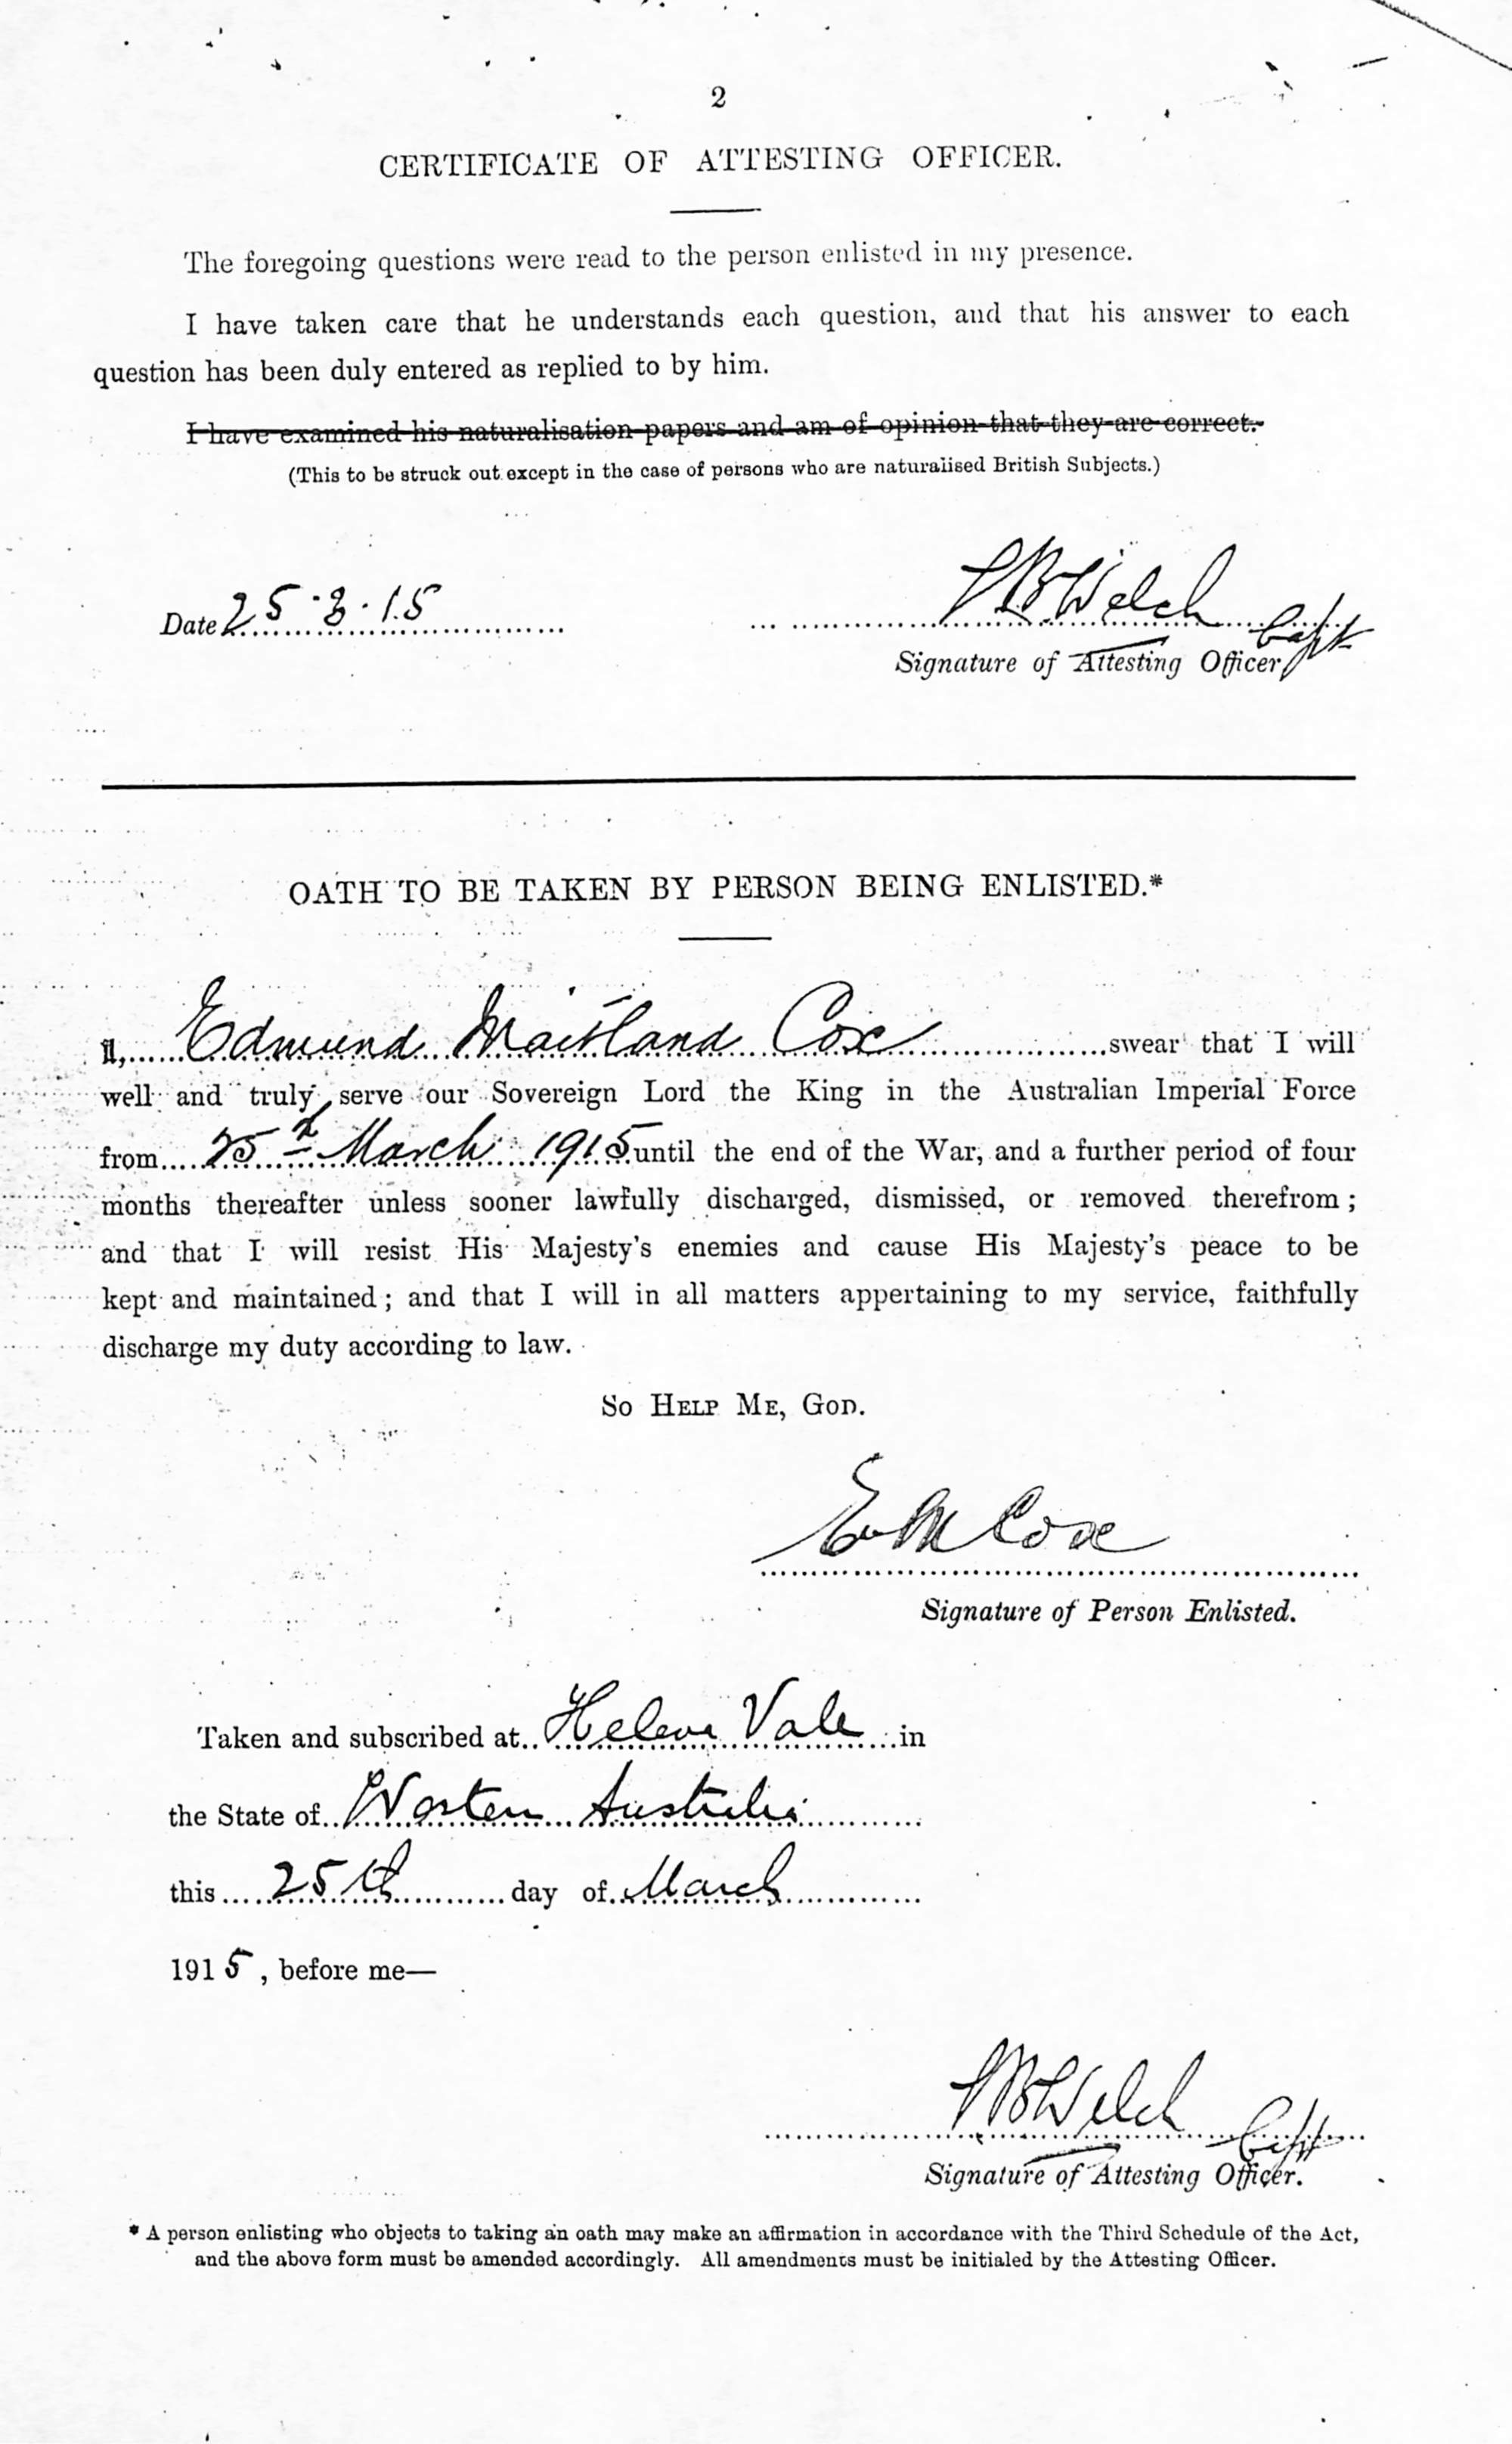 2
CERTIFICATE OF ATTESTING OFFICER.
The foregoing questions were read to the person enlisted in my presence.
I have taken care that he understands each question, and that his answer to each
question has been duly entered as replied to by him.
I have examined his naturalisation papers and am of opinion that they are correct.
(This to be struck out except in the case of persons who are naturalised British Subjects.)
Date 25.3.15
Welch Capt
Signature of Attesting Officer
OATH TO BE TAKEN BY PERSON BEING ENLISTED.*
I, Edmund Maitland Cox swear that I will
well and truly serve our Sovereign Lord the King in the Australian Imperial Force
from 25th March 1915 until the end of the War, and a further period of four
months thereafter unless sooner lawfully discharged, dismissed, or removed therefrom;
and that I will resist His Majesty's enemies and cause His Majesty's peace to be
kept and maintained; and that I will in all matters appertaining to my service, faithfully
discharge my duty according to law.
So Help Me, God.
E M Cox
Signature of Person Enlisted.
Taken and subscribed at Helena Vale in
the State of Western Australia
this 25th day of March
1915, before me—
Welch Capt
Signature of Attesting Officer.
* A person enlisting who objects to taking an oath may make an affirmation in accordance with the Third Schedule of the Act,
and the above form must be amended accordingly. All amendments must be initialed by the Attesting Officer.